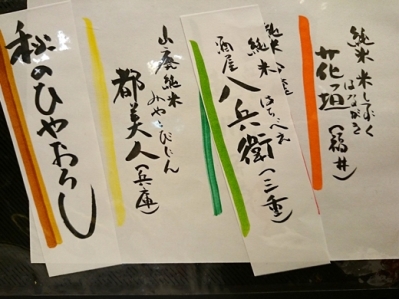 純米 米しずく
はながき
花垣(福井)
純米
はちべえ
酒屋八兵衛(三重)
山廃純米
みやこびじん
都美人(兵庫)
秋のひやおろし